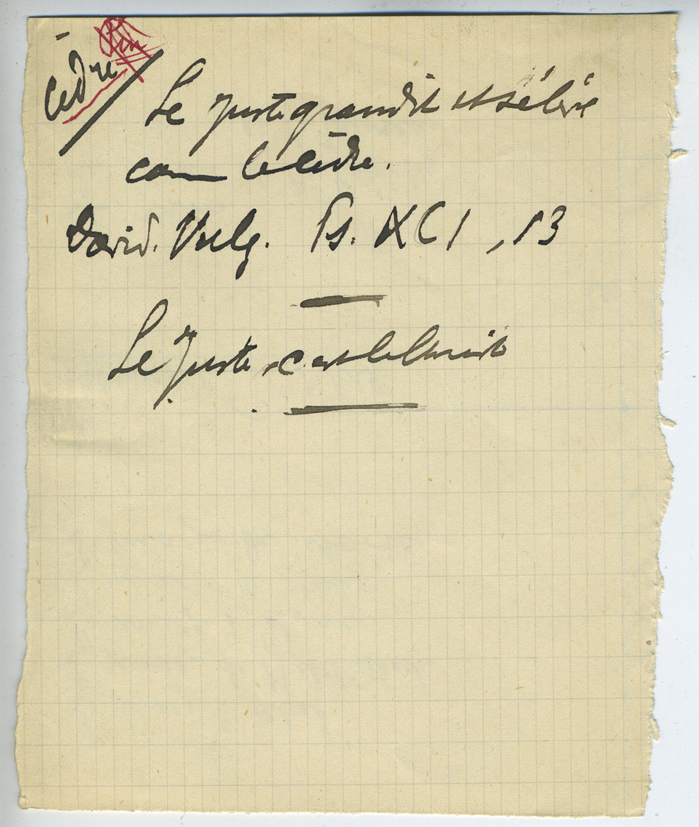 Cèdre
Le juste grandit et s'élève
comme le cèdre.
David. Vulg. Ps. XCI, 13
Le juste, c'est le Christ